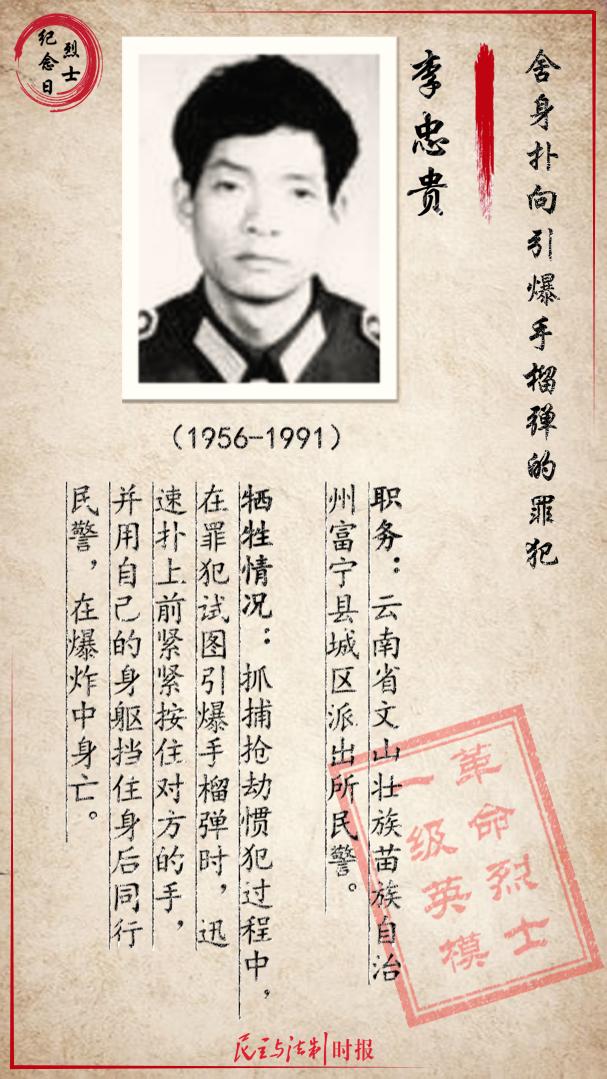 舍身扑向引爆手榴弹的罪犯
李忠贵
烈士
纪念日
（1956-1991）
职务：云南省文山壮族苗族自治
州富宁县城区派出所民警。
牺牲情况：抓捕抢劫惯犯过程中，
在罪犯试图引爆手榴弹时，迅
速扑上前紧紧按住对方的手，
并用自己的身躯挡住身后同行
民警，在爆炸中身亡。
革命烈士
一级英模
民主与法制时报